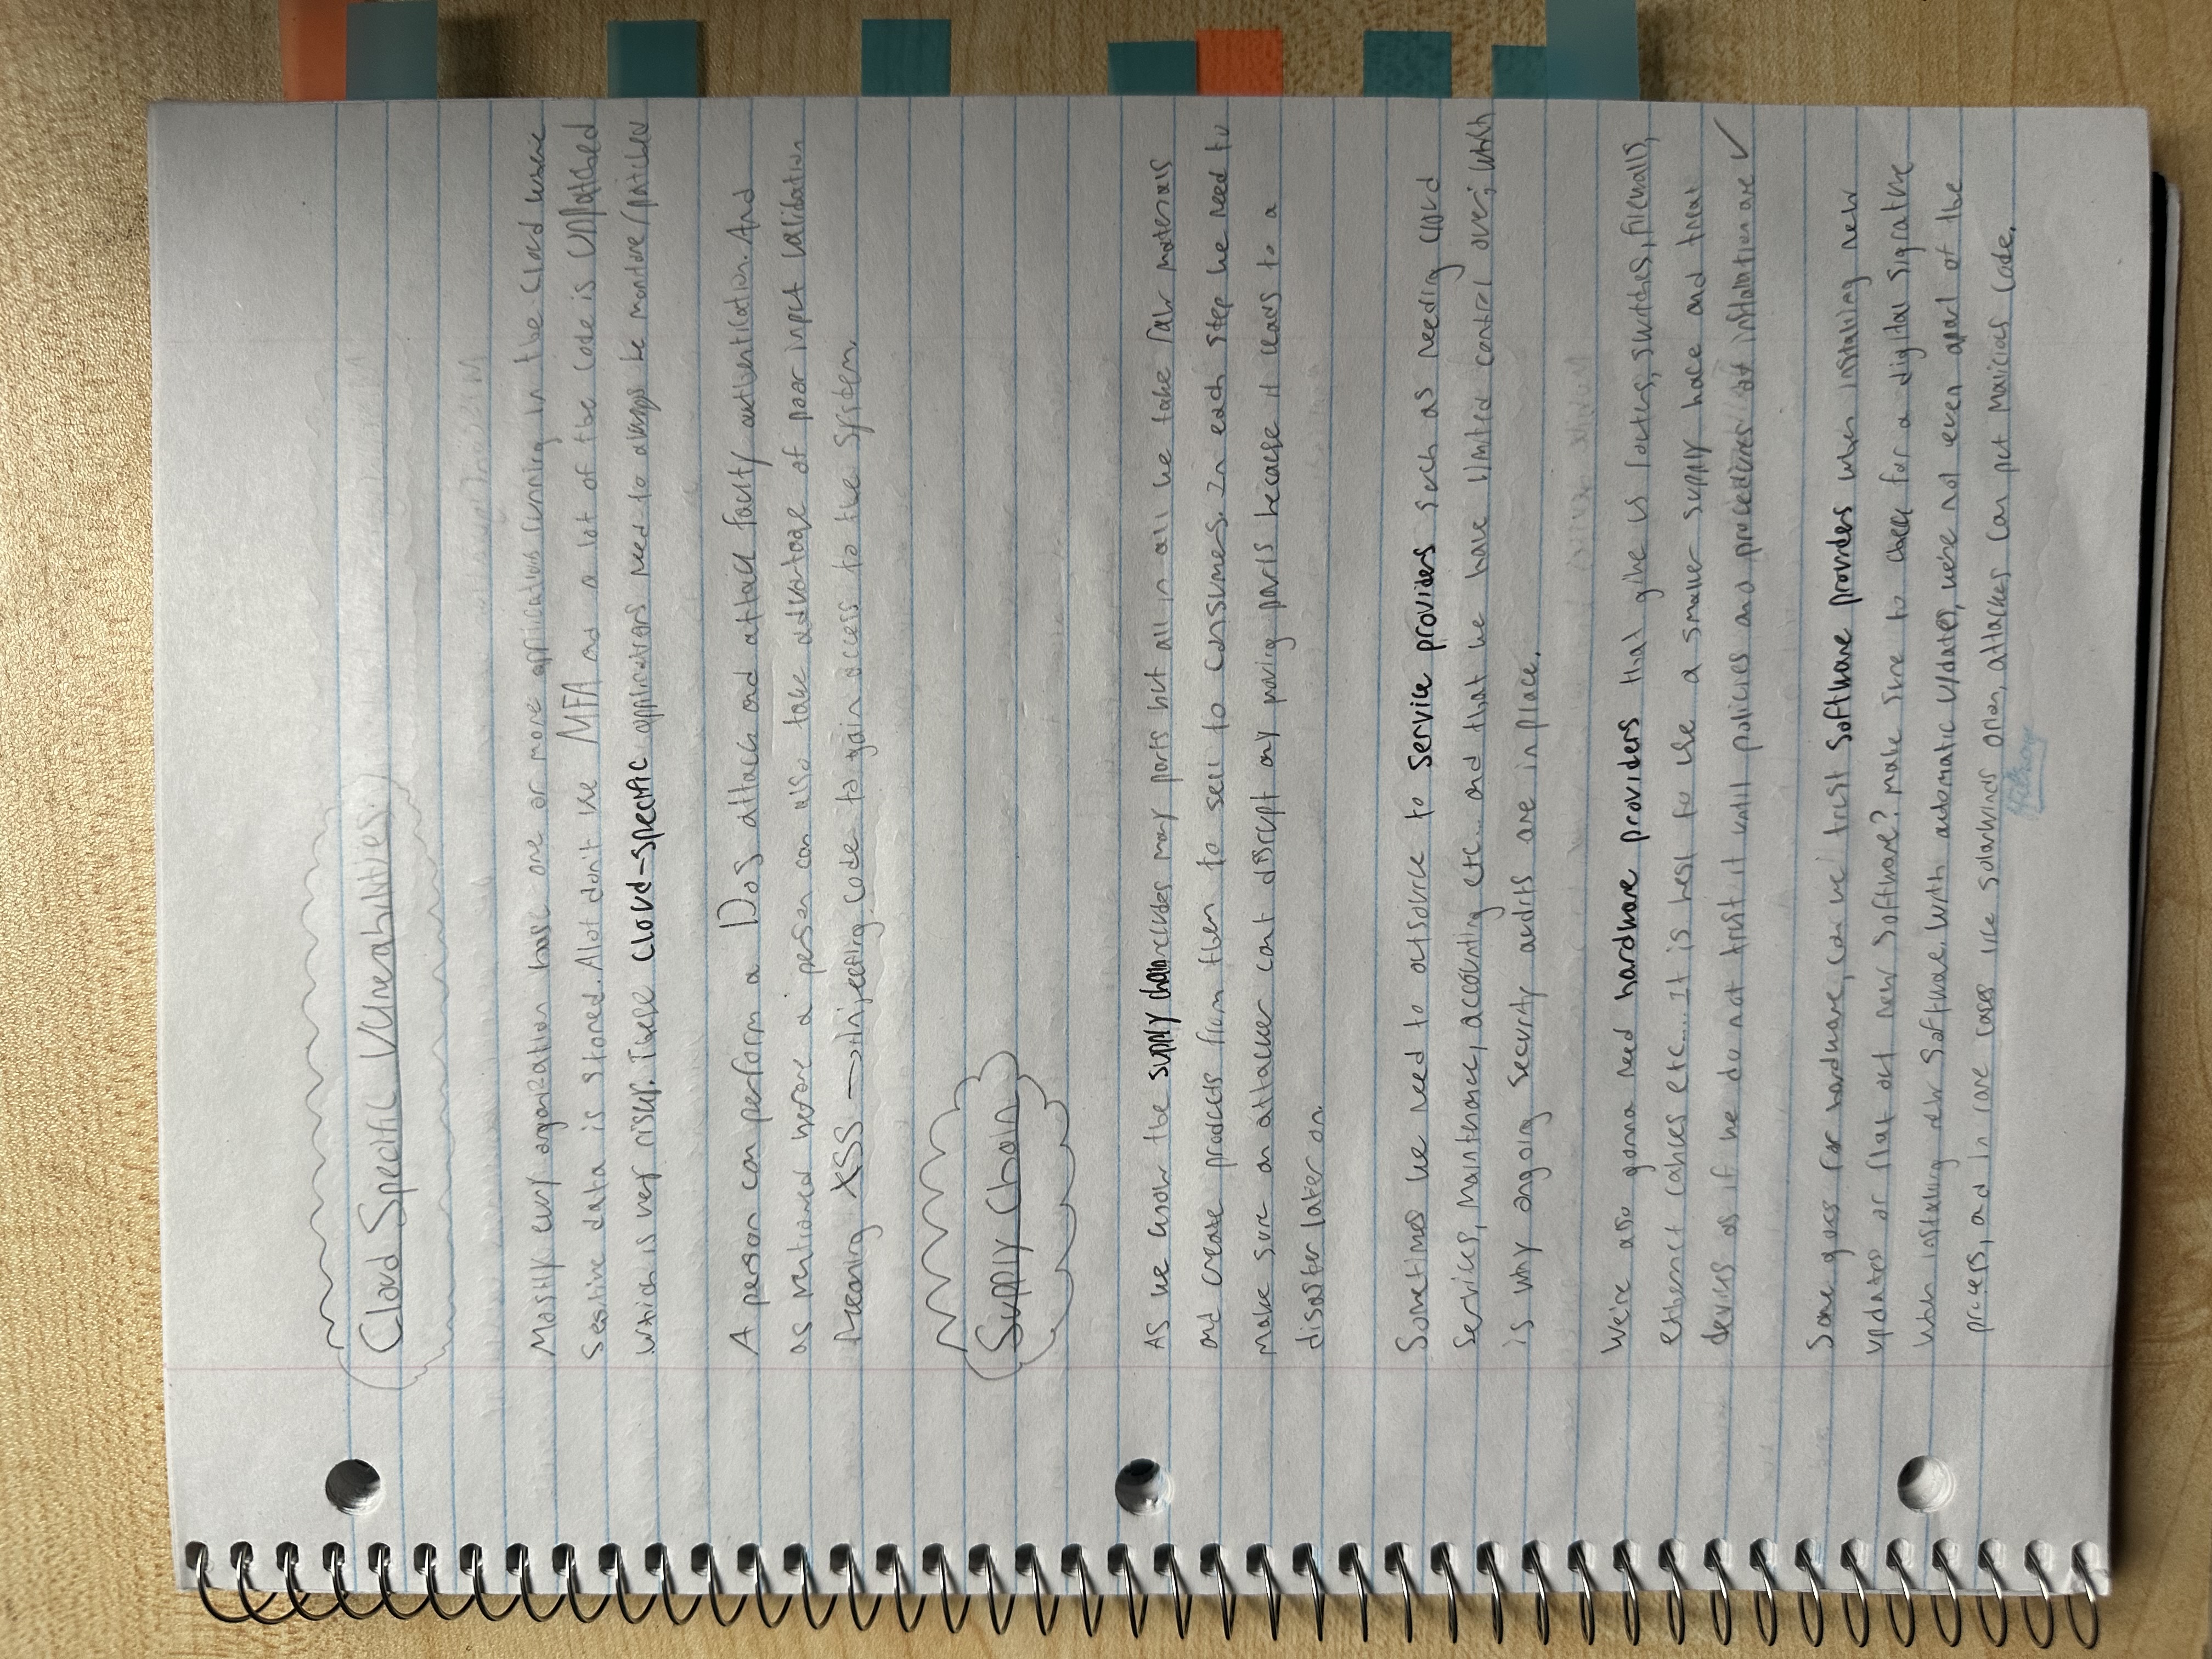 Cloud Specific Vulnerabilities
Mostly every organization have one or more applications running in the cloud where
Sesitive data is stored. Alot don't use MFA and a lot of the code is unpatched
which is very risky. These cloud-specific applications need to always be monitore/patched
A person can perform a DoS attack and attack faulty authentication. And
as mentioned before a person can also take advantage of poor input validation
Meaning XSS → Injecting code to gain access to the system.
Supply Chain
As we know the supply chain includes many parts but all in all we take raw materials
and create products from them to sell to consumers. In each step we need to
make sure an attacker cant disrupt any moving parts because it leads to a
disaster later on.
Sometimes we need to outsource to service providers such as needing cloud
services, maintenance, accounting etc... and that we have limited control over; which
is why ongoing security audits are in place.
We're also gonna need hardware providers that give us routers, switches, firewalls,
ethernet cables etc.... It is best to use a smaller supply base and treat
devices as if we do not trust it until policies and procedures at installation are ✓
Same goes for hardware, can we trust software providers when installing new
updates or flat out new software? Make sure to check for a digital signature
when installing new software. With automatic updates, we're not even apart of the
process, and in rare cases like solarwinds orion, attackers can put malicious code.